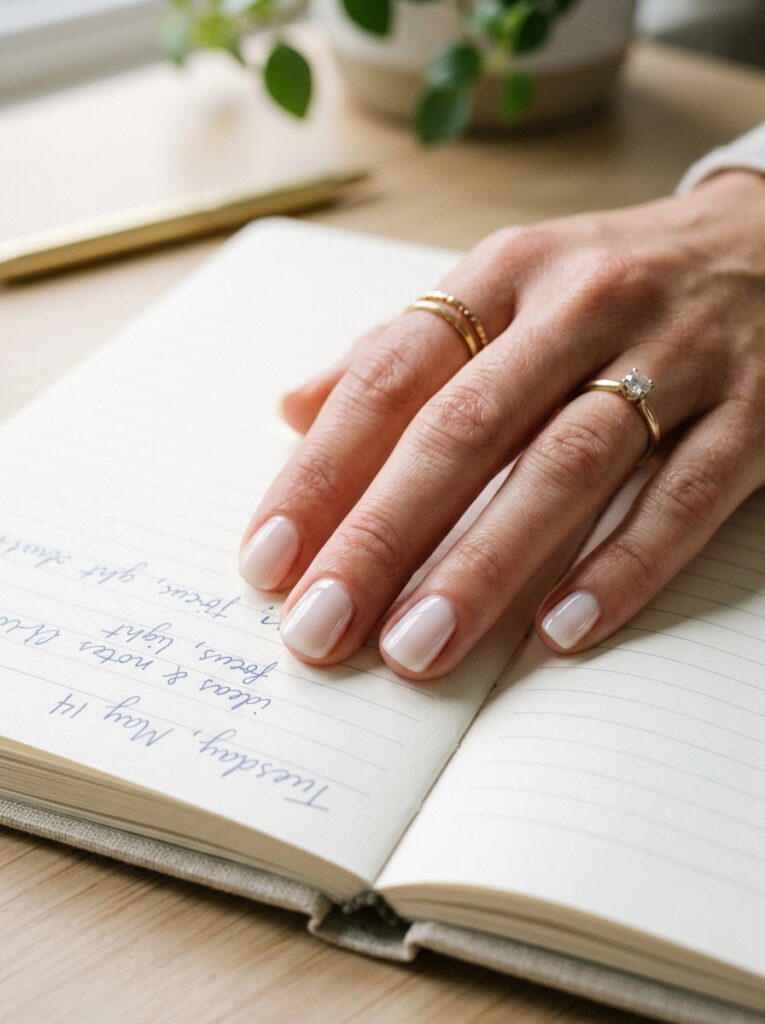 Tuesday, May 14
ideas & notes
focus, light
focus, ght